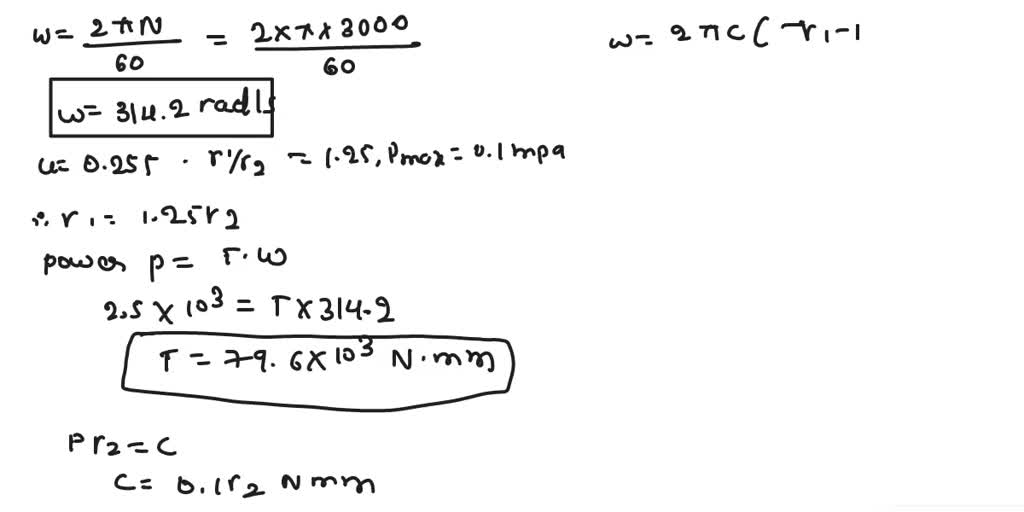 ω = 2πN/60 = 2×π×3000/60
ω = 314.2 rad/s
u= 0.255 . r1/r2 = 1.25, Pmax = 0.1 mpa
∴ r1 = 1.25r2
power p = T.ω
2.5 × 10³ = T × 314.2
T = 79.6 × 10³ N.mm
P r2 = C
C = 0.1r2 N mm
ω = 2πC( r1-1